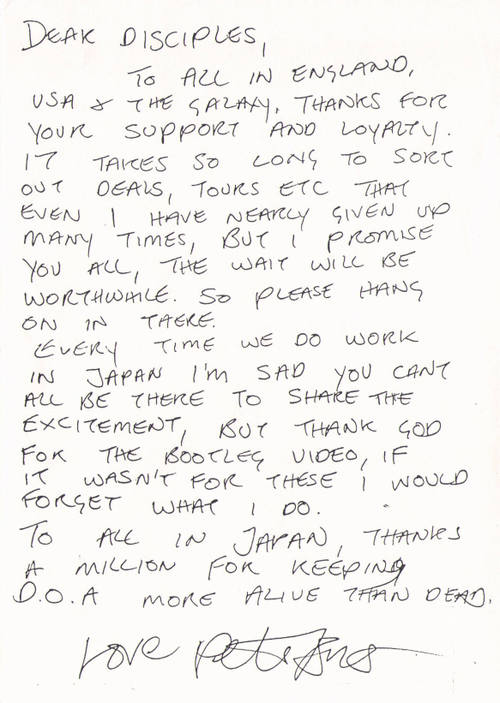 DEAR DISCIPLES,
TO ALL IN ENGLAND,
USA & THE GALAXY, THANKS FOR
YOUR SUPPORT AND LOYALTY.
IT TAKES SO LONG TO SORT
OUT DEALS, TOURS ETC THAT
EVEN I HAVE NEARLY GIVEN UP
MANY TIMES, BUT I PROMISE
YOU ALL, THE WAIT WILL BE
WORTHWHILE. SO PLEASE HANG
ON IN THERE.
EVERY TIME WE DO WORK
IN JAPAN I'M SAD YOU CANT
ALL BE THERE TO SHARE THE
EXCITEMENT, BUT THANK GOD
FOR THE BOOTLEG VIDEO, IF
IT WASN'T FOR THESE I WOULD
FORGET WHAT I DO.
TO ALL IN JAPAN, THANKS
A MILLION FOR KEEPING
D.O.A MORE ALIVE THAN DEAD.
LOVE Pete